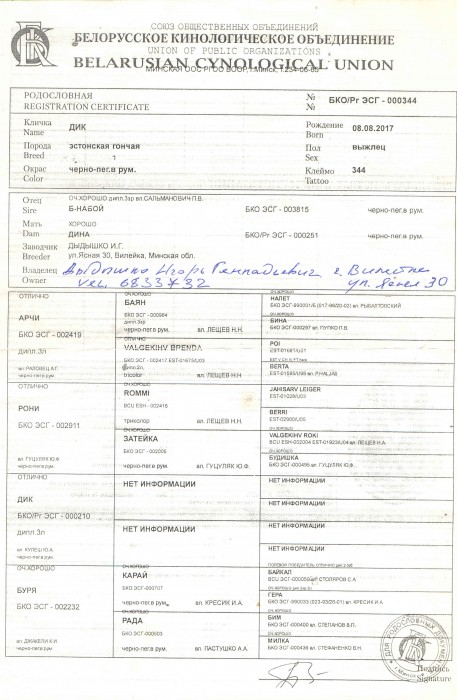 СОЮЗ ОБЩЕСТВЕННЫХ ОБЪЕДИНЕНИЙ
БЕЛОРУССКОЕ КИНОЛОГИЧЕСКОЕ ОБЪЕДИНЕНИЕ
UNION OF PUBLIC ORGANIZATIONS
BELARUSIAN CYNOLOGICAL UNION
МИНСКАЯ ООС РГОО БООР, г.Минск, т.234-06-65
РОДОСЛОВНАЯ № БКО/Рг ЭСГ - 000344
REGISTRATION CERTIFICATE №
Кличка ДИК Рождение 08.08.2017
Name Born
Порода эстонская гончая Пол выжлец
Breed Sex
Окрас черно-пег.в рум. Клеймо 344
Color Tattoo
Отец ОЧ.ХОРОШО дипл.3зр вл.САЛЬМАНОВИЧ П.В.
Sire Б-НАБОЙ БКО ЭСГ - 003815 черно-пег.в рум.
Мать ХОРОШО
Dam ДИНА БКО/Рг ЭСГ - 000251 черно-пег.в рум.
Заводчик ДЫДЫШКО И.Г.
Breeder ул.Ясная 30, Вилейка, Минская обл.
Владелец Дыдышко Игорь Геннадьевич г. Вилейка
Owner 6833732 ул. Ясная 30
ОТЛИЧНО
АРЧИ
БКО ЭСГ - 002419
дипл.3л
вл. РАПОВЕЦ А.Г.
черно-пег.в рум.
ОТЛИЧНО
РОНИ
БКО ЭСГ - 002911
вл. ГУЦУЛЯК Ю.Ф.
черно-пег.в рум.
ОТЛИЧНО
ДИК
БКО/Рг ЭСГ - 000210
дипл.3л
вл. КУЛЕШ Ю.А.
черно-пег.в рум.
ОЧ.ХОРОШО
БУРЯ
БКО ЭСГ - 002232
вл. ДЖАКЕЛИ К.И.
черно-пег.в рум.
ОЧ.ХОРОШО
БАЯН
БКО ЭСГ - 000984
дипл.3зр
черно-пег.в рум. вл. ЛЕЩЕВ Н.Н.
ОТЛИЧНО
VALGEKIHV BRENDA
БКО ЭСГ - 002417 EST-01675/U03
tricolor вл. ЛЕЩЕВ Н.Н.
ОЧ.ХОРОШО
ROMMI
BCU ESH - 002416
триколор вл. ЛЕЩЕВ Н.Н.
ОЧ.ХОРОШО
ЗАТЕЙКА
БКО ЭСГ - 002005
черно-пег.в рум. вл. ГУЦУЛЯК Ю.Ф.
НЕТ ИНФОРМАЦИИ
НЕТ ИНФОРМАЦИИ
ОЧ.ХОРОШО
КАРАЙ
БКО ЭСГ-000707
черно-пег.в рум. вл. КРЕСИК И.А.
ОЧ.ХОРОШО
РАДА
БКО ЭСГ -000503
черно-пег.в рум. вл. ПАСТУШКО А.А.
НАЛЕТ
БИНА
БКО ЭСГ-000297 вл. ПУПКО П.В.
POI
EST-01681/U01
BERTA
JAHISARV LEIGER
EST-01028/U03
BERRI
EST-02900/U05
VALGEKIHV ROKI
ОЧ.ХОРОШО
БУДИШКА
БКО ЭСГ-000495 вл. ГУЦУЛЯК Ю.Ф.
НЕТ ИНФОРМАЦИИ
НЕТ ИНФОРМАЦИИ
НЕТ ИНФОРМАЦИИ
НЕТ ИНФОРМАЦИИ
БАЙКАЛ
СТОЛЯРОВ С.А
ОЧ.ХОРОШО
ГЕРА
вл. КРЕСИК И.А
ОЧ.ХОРОШО
БИМ
БКО ЭСГ-000400 вл. СТЕПАНОВ В.П.
ОЧ.ХОРОШО
МИЛКА
БКО ЭСГ-000436 вл. СТЕФАНЕНКО В.Н.
ДЛЯ РОДОСЛОВНЫХ ДОКУМЕНТОВ
Подпись
Signature